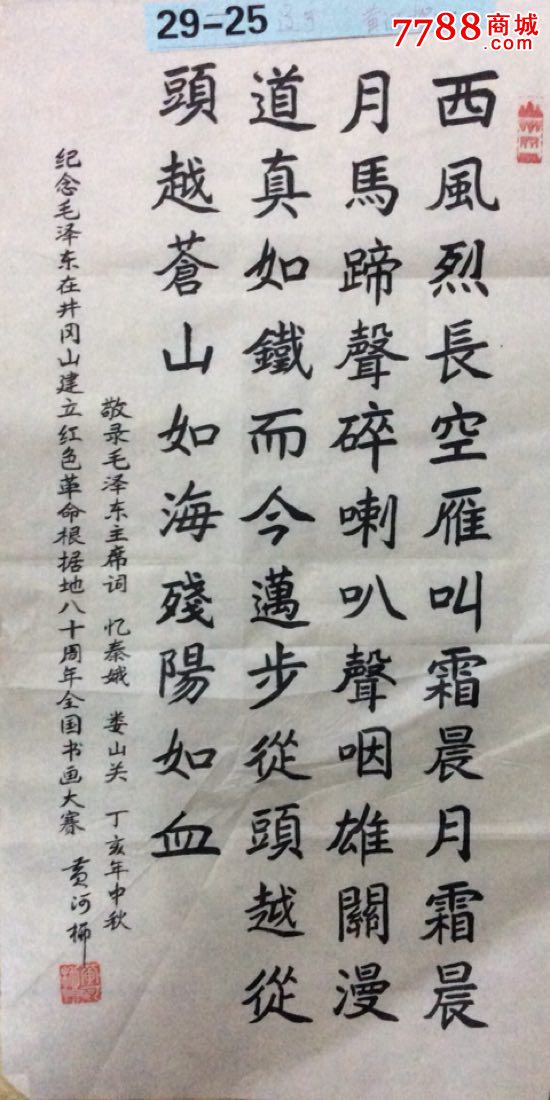 29-25
7788商城
西風烈長空雁叫霜晨月霜晨
月馬蹄聲碎喇叭聲咽雄關漫
道真如鐵而今邁步從頭越從
頭越蒼山如海殘陽如血
敬录毛泽东主席词 忆秦娥 娄山关 丁亥年中秋
纪念毛泽东在井冈山建立红色革命根据地八十周年全国书画大赛 黄河